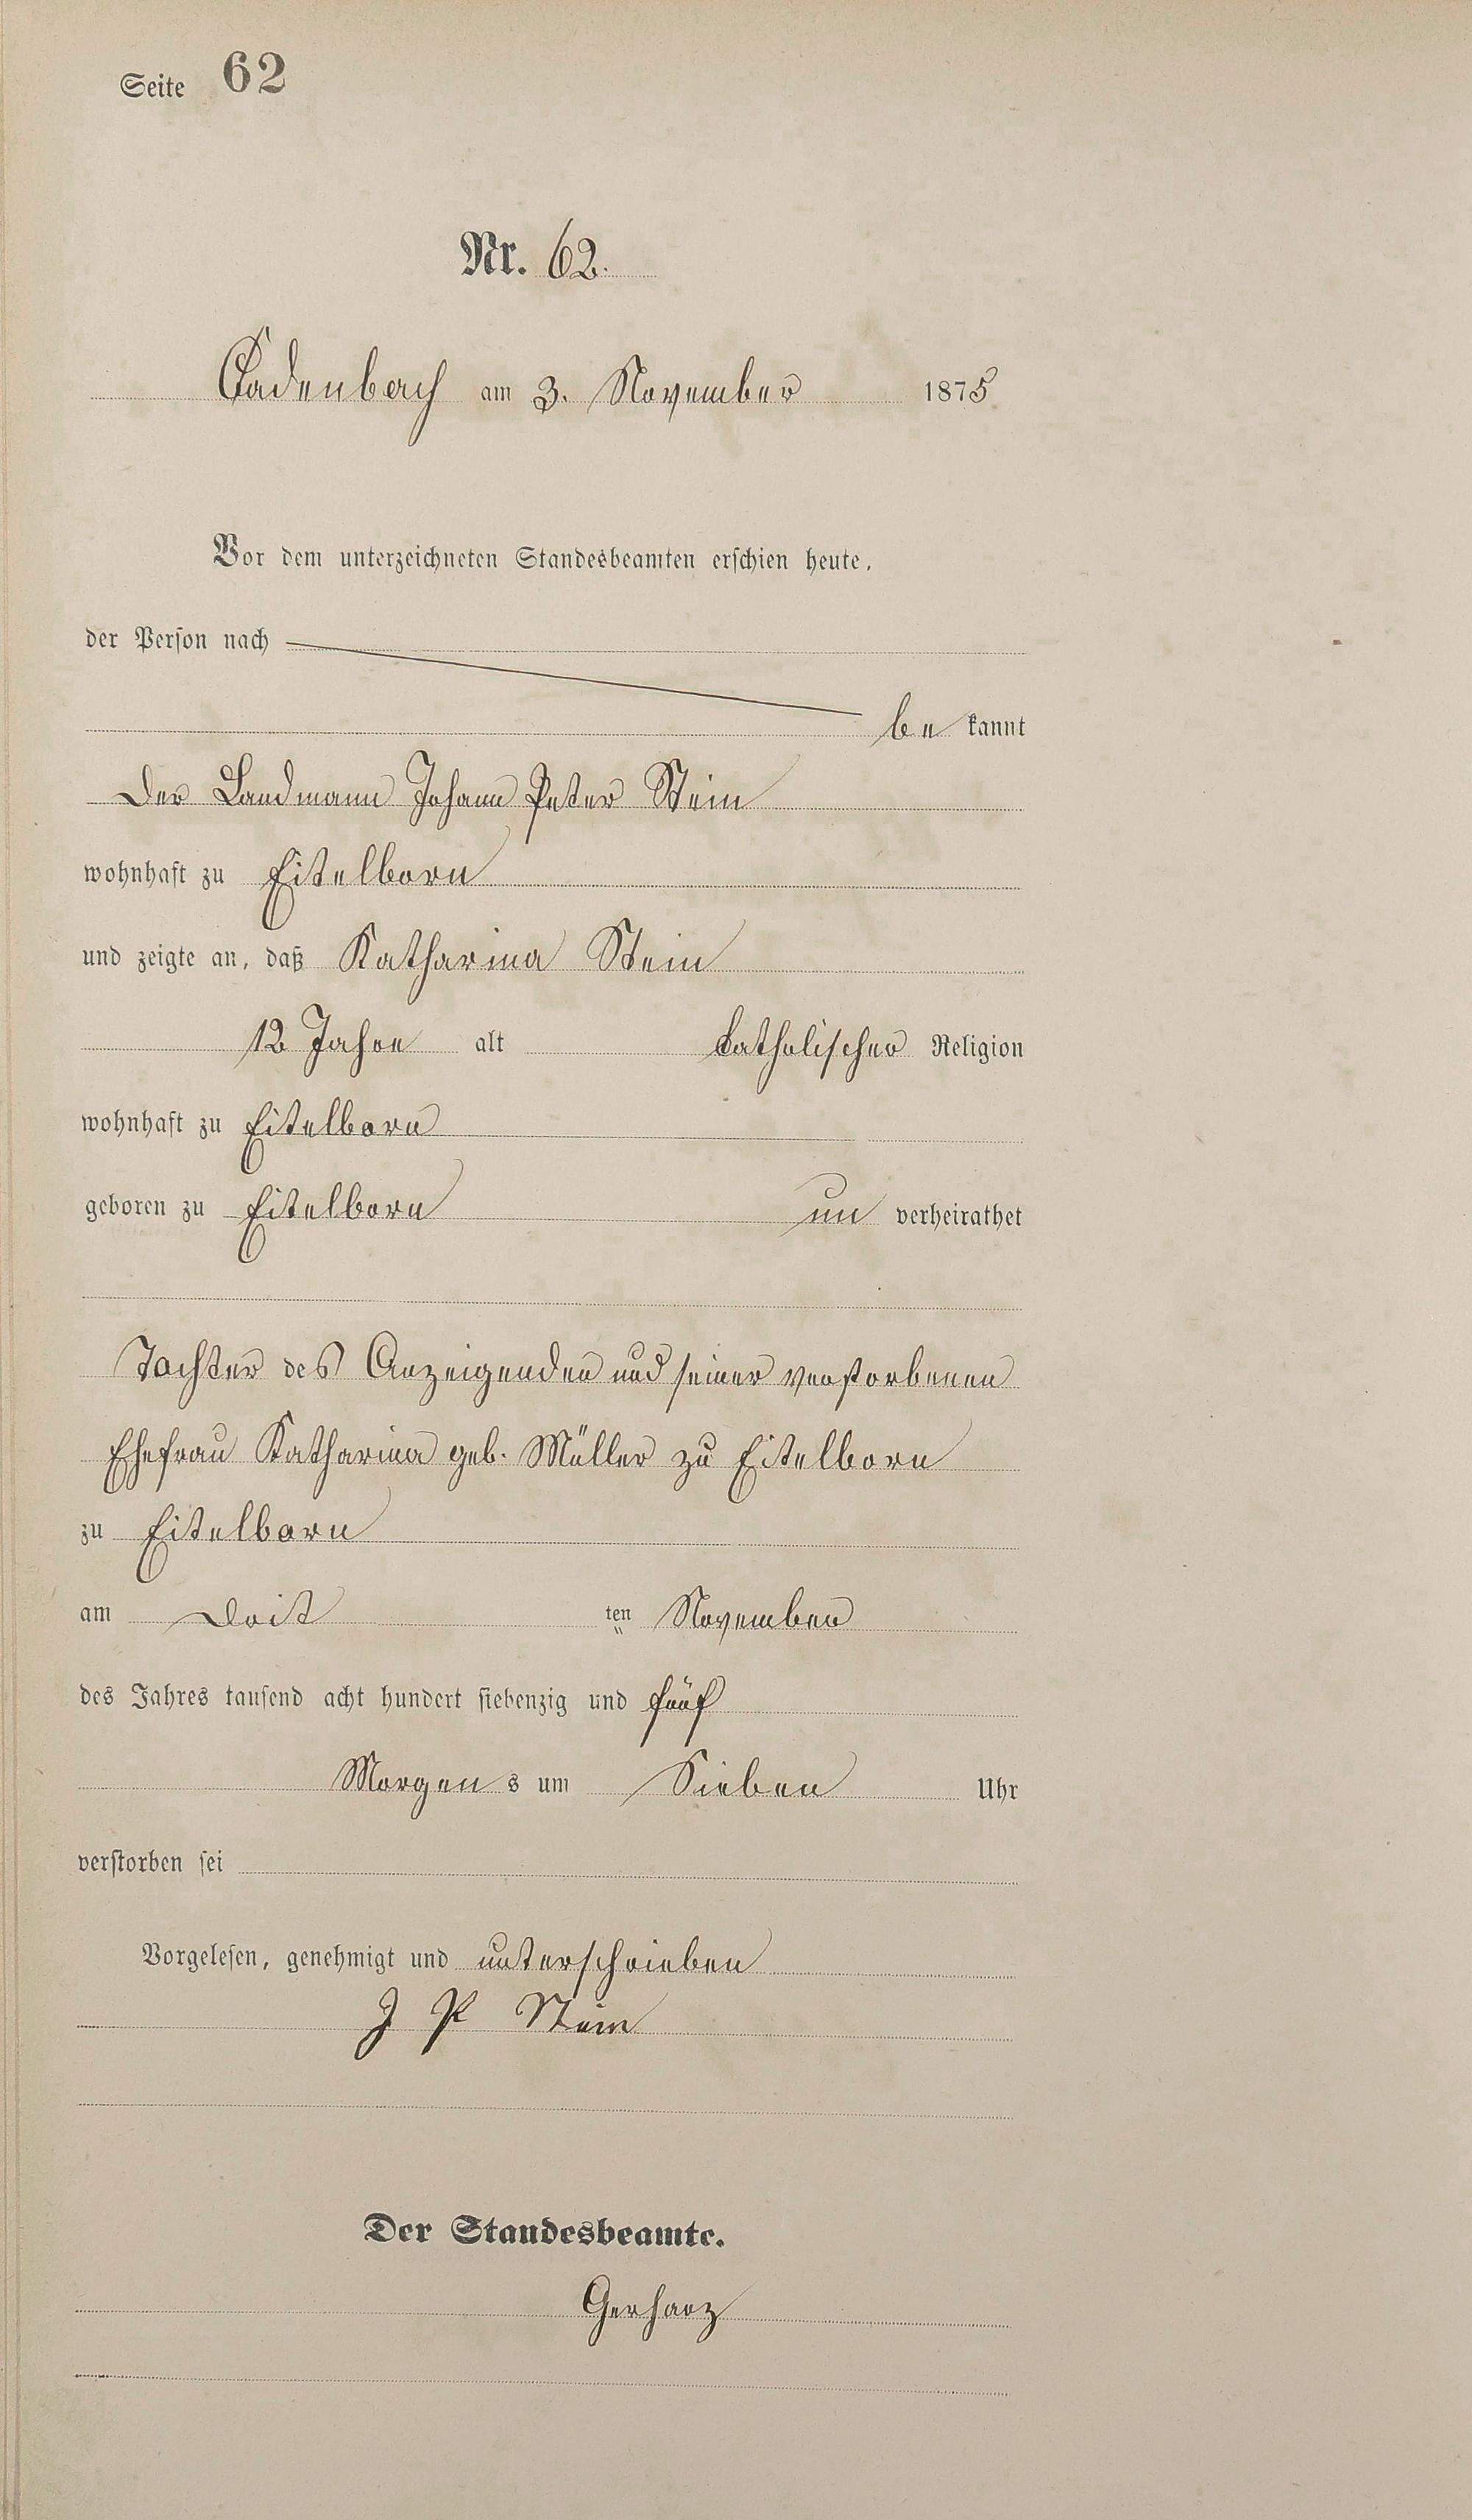 Seite 62
Nr. 62.
Cadenbach am 3. November 1875
Vor dem unterzeichneten Standesbeamten erschien heute,
der Person nach
be kannt
der Landmann Johann Peter Stein
wohnhaft zu Eitelborn
und zeigte an, daß Katharina Stein
12 Jahre alt katholischer Religion
wohnhaft zu Eitelborn
geboren zu Eitelborn un verheirathet
Tochter des Anzeigenden und seiner verstorbenen
Ehefrau Katharina geb. Müller zu Eitelborn
zu Eitelborn
am Drit ten November
des Jahres tausend acht hundert siebenzig und fünf
Morgen s um Sieben Uhr
verstorben sei
Vorgelesen, genehmigt und unterschrieben
J P Stein
Der Standesbeamte.
Gerharz